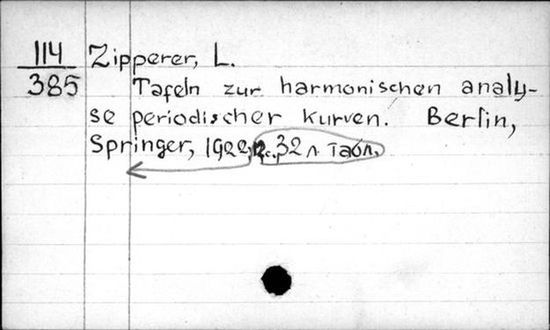 114 Zipperer, L.
385 Tafeln zur harmonischen analy-
se periodischer Kurven. Berlin,
Springer, 1922, 32 л. табл.